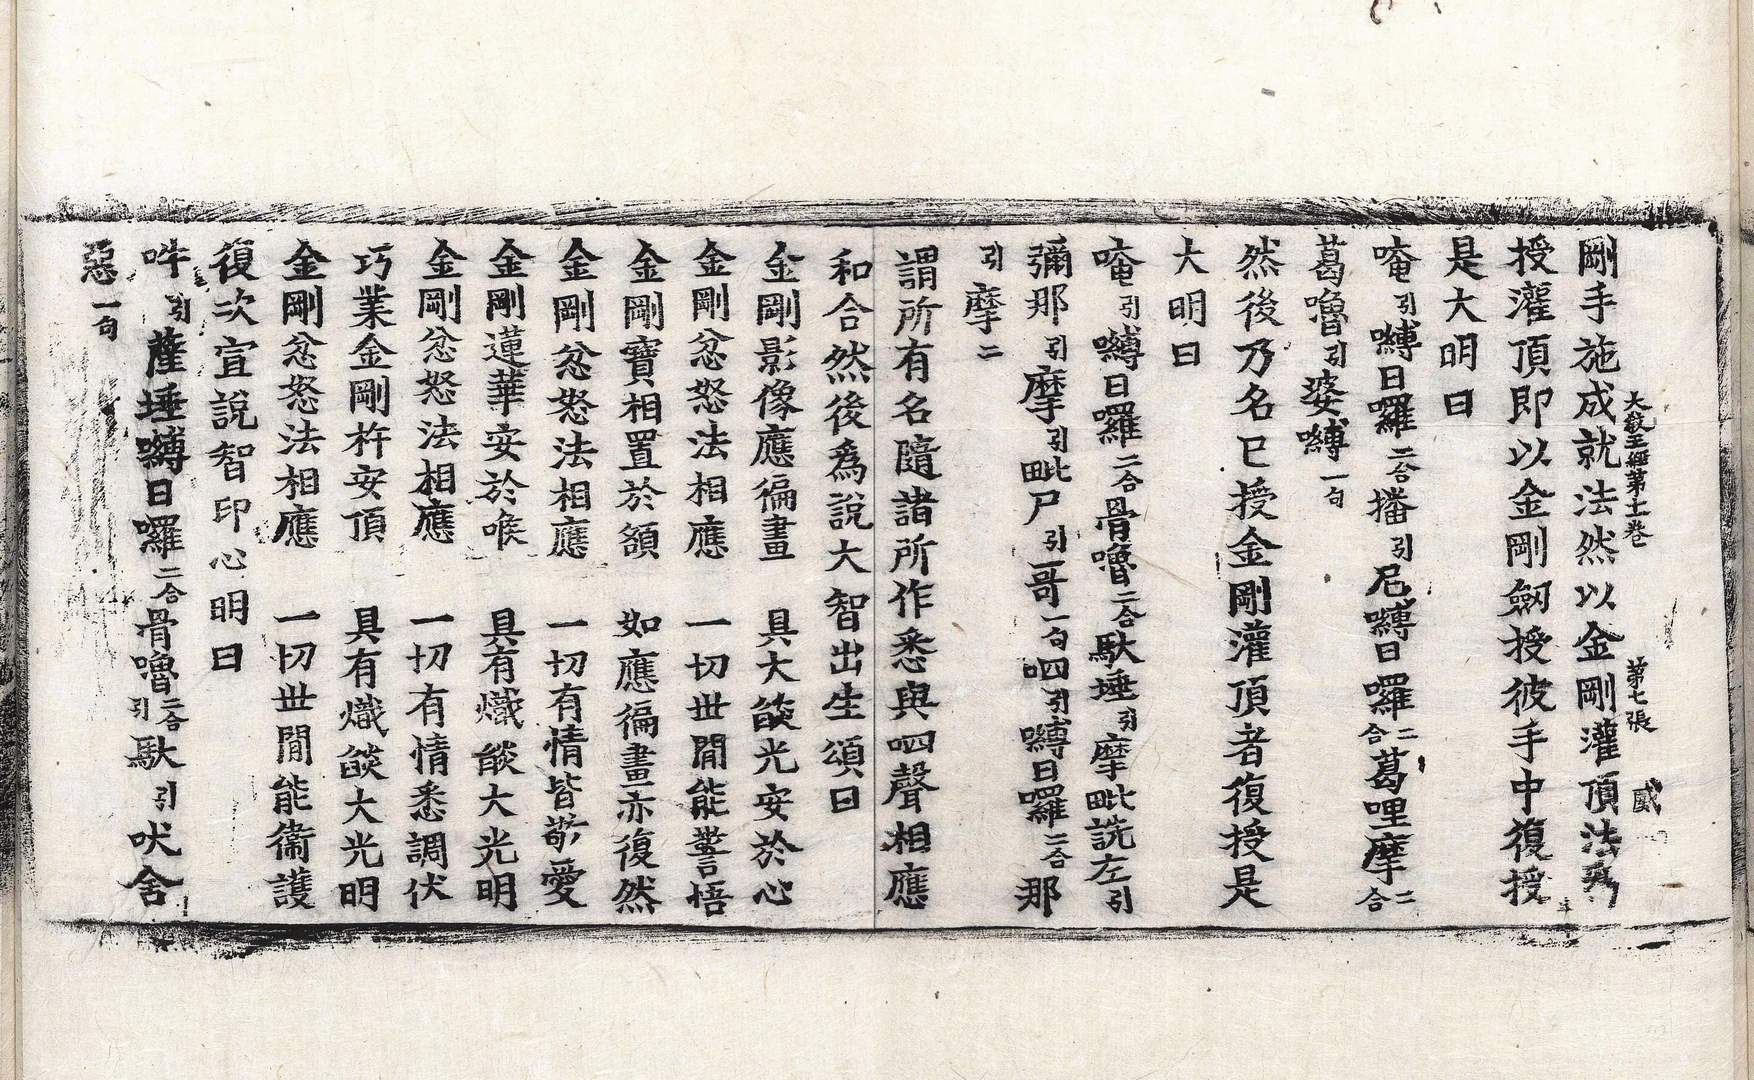 大教王經第十一卷　第七張　貳
剛手施成就法然以金剛灌頂法爲
授灌頂即以金剛劒授彼手中復授
是大明曰
唵引嚩日囉二合播引尼嚩日囉二合葛哩摩二合
葛嚕引婆嚩一句
然後乃名已授金剛灌頂者復授是
大明曰
唵引嚩日囉二合骨嚕二合馱埵引摩毗詵左引
彌那引摩引毗尸引哥一句呬引嚩日囉二合那
引摩二
謂所有名隨諸所作悉與呬聲相應
和合然後爲說大智出生頌曰
金剛影像應徧畫　具大燄光安於心
金剛忿怒法相應　一切世閒能警悟
金剛寶相置於額　如應徧畫亦復然
金剛忿怒法相應　一切有情皆敬愛
金剛蓮華安於喉　具有熾燄大光明
金剛忿怒法相應　一切有情悉調伏
巧業金剛杵安頂　具有熾燄大光明
金剛忿怒法相應　一切世閒能衞護
復次宣說智印心明曰
吽引薩埵嚩日囉二合骨嚕二合引馱引吠舍
惡一句